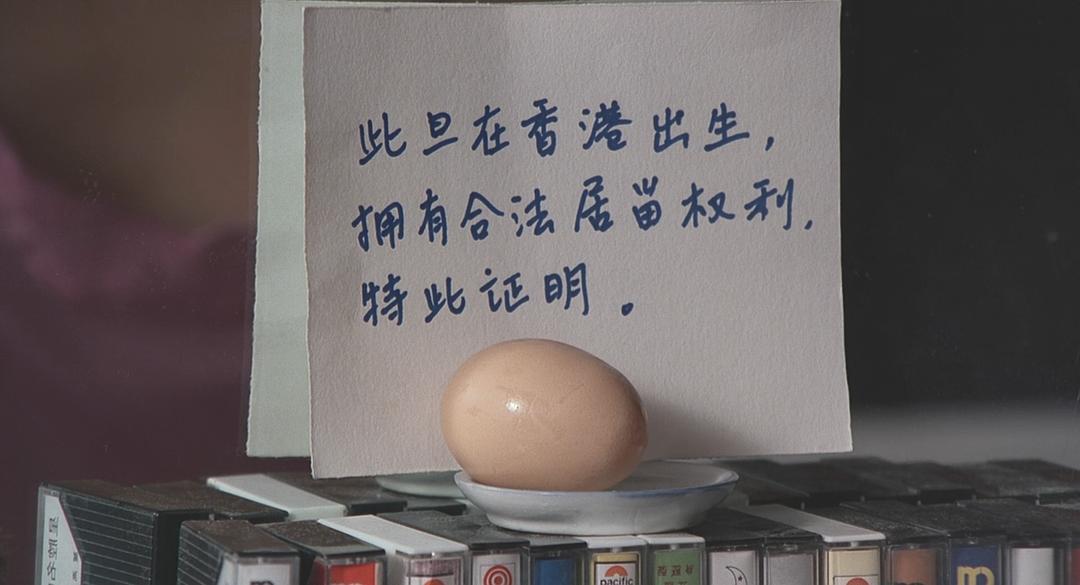 此旦在香港出生，
拥有合法居畄权利，
特此证明。
pacific